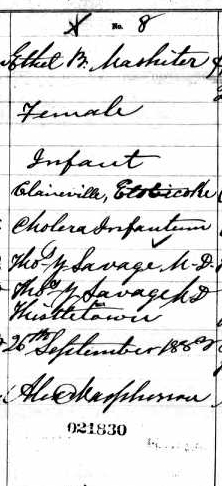 No. 8
Ethel B. Mashiter
Female
Infant
Claireville, Etobicoke
Cholera Infantum
Thos Y Savage M.D.
Thos Y Savage MD
Thistletown
26th September 188
Alex Macpherson
021830